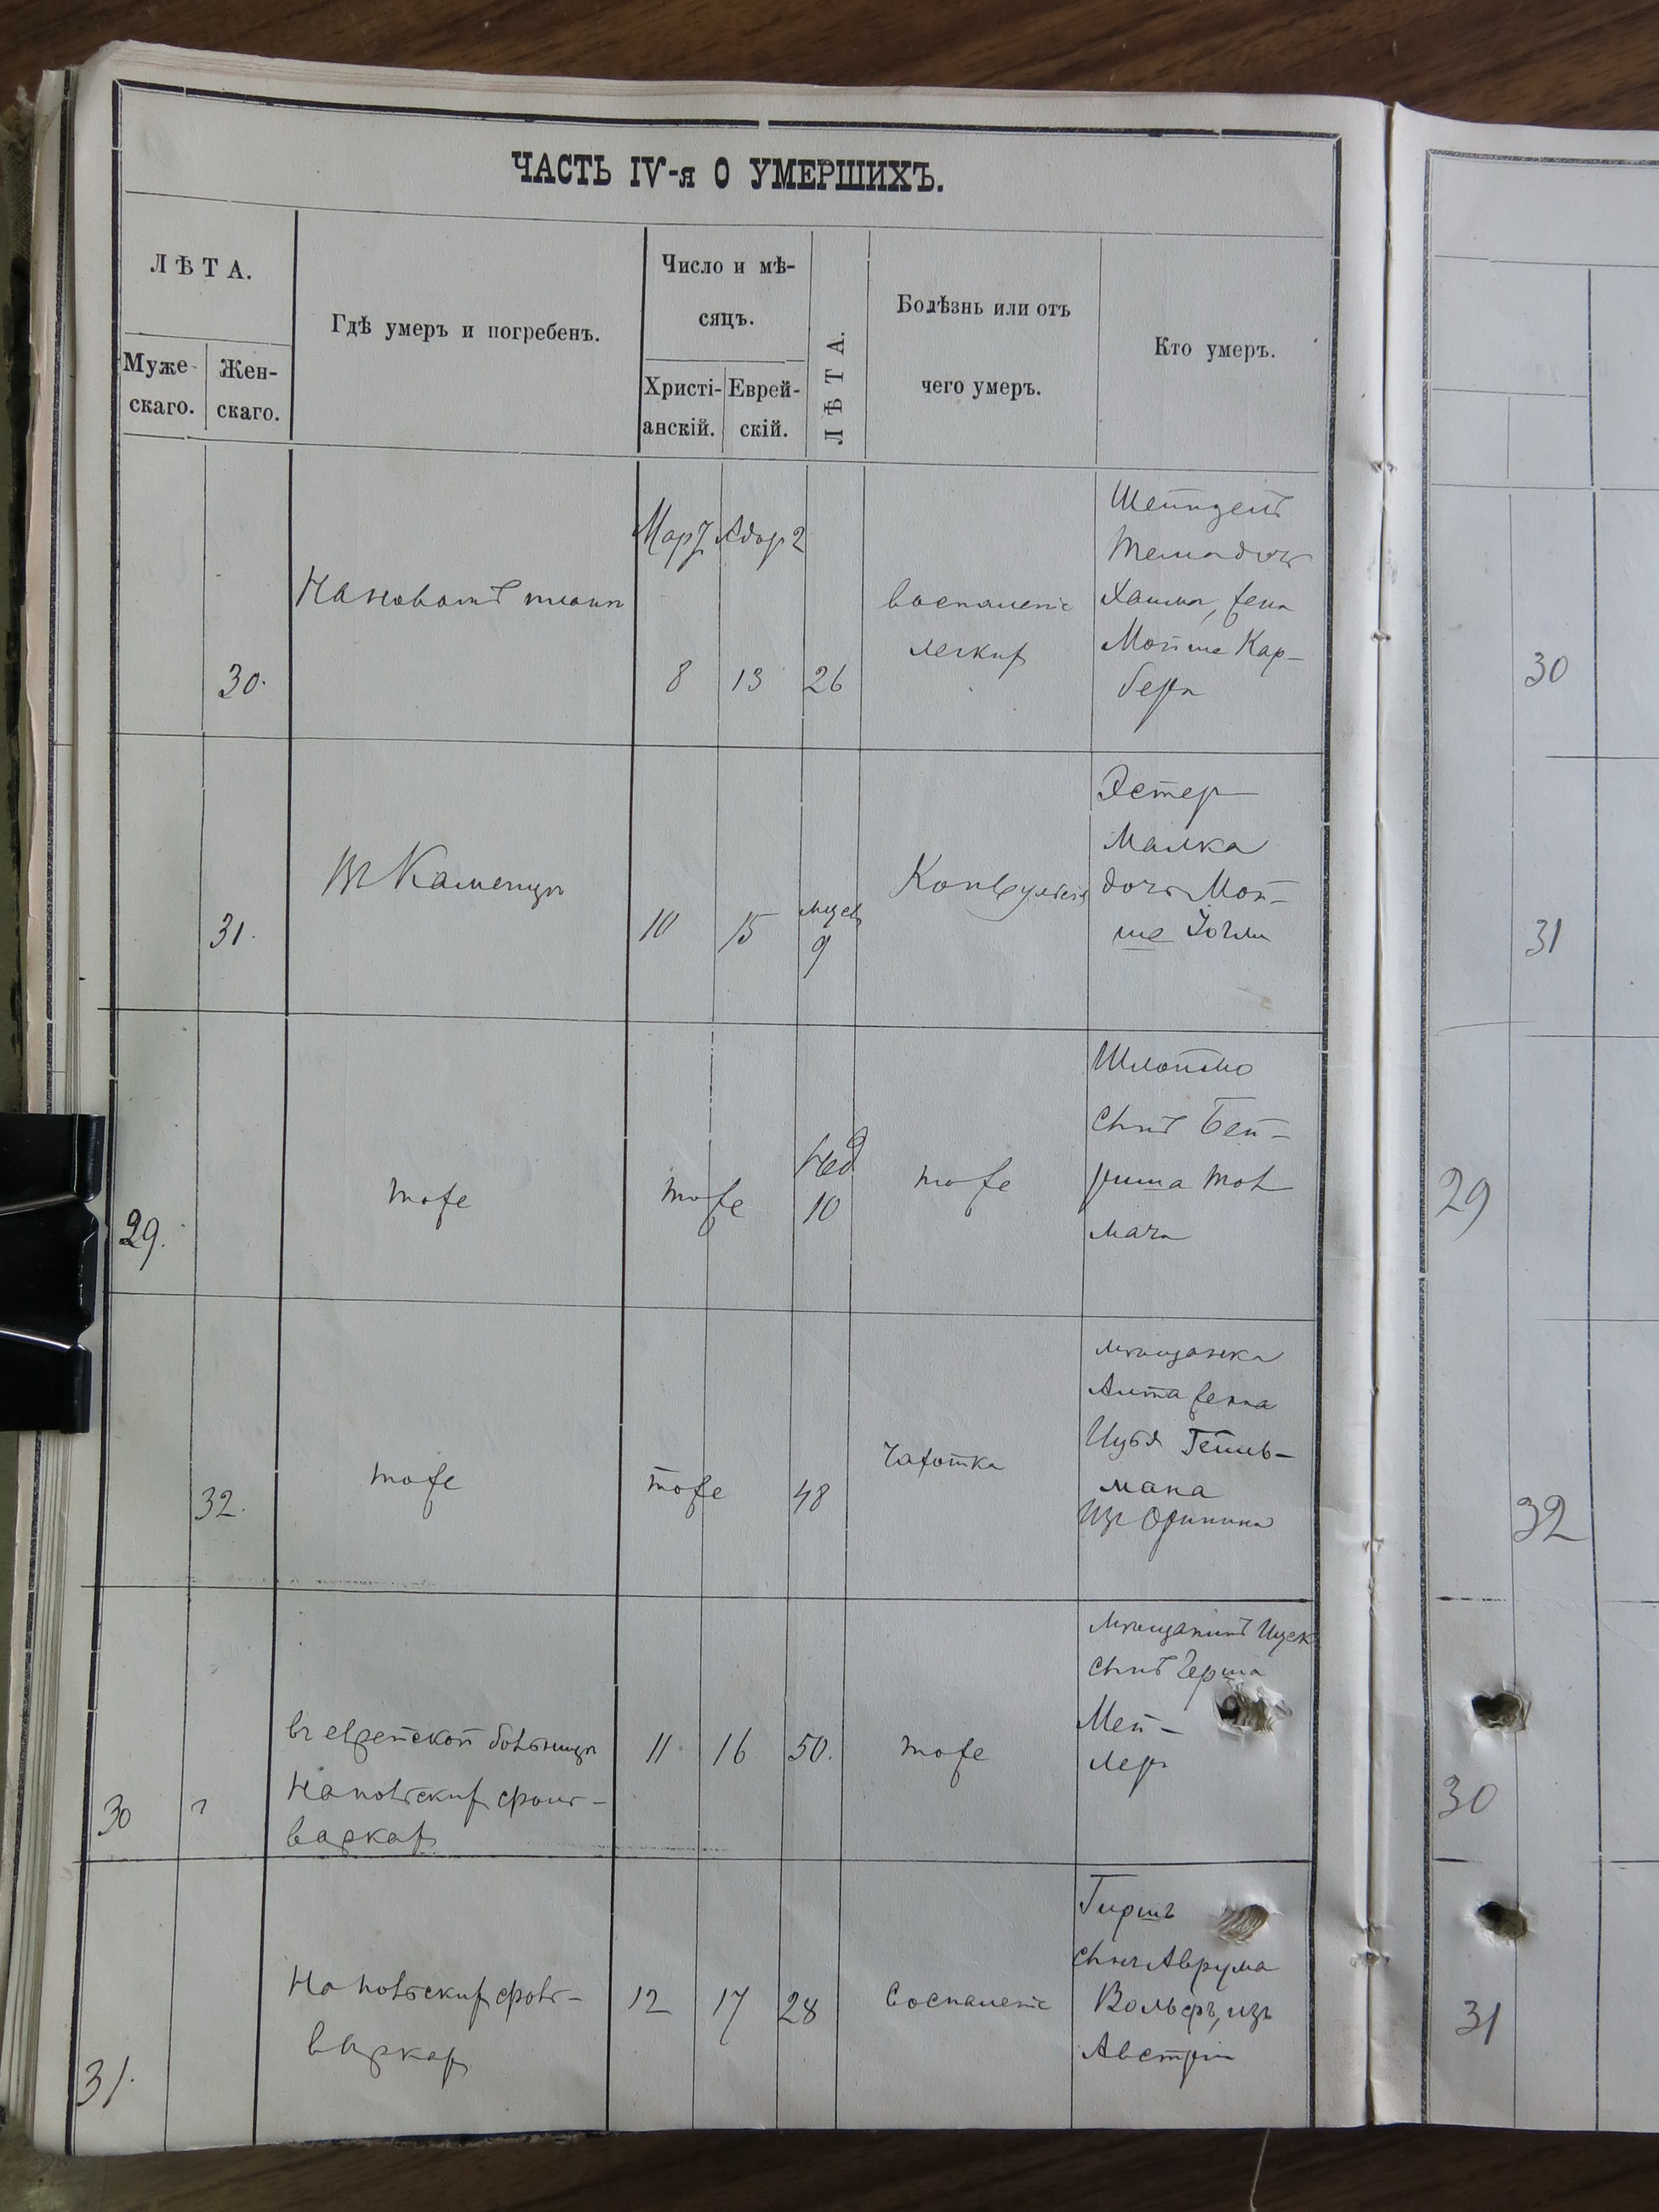 ЧАСТЬ IV-я О УМЕРШИХЪ.
ЛѢТА.
Муже-
скаго.
Жен-
скаго.
Гдѣ умеръ и погребенъ.
Число и мѣ-
сяцъ.
Христі-
анскій.
Еврей-
скій.
ЛѢТА.
Болѣзнь или отъ
чего умеръ.
Кто умеръ.
30.
На новомъ плані
Мартъ
8
Адар 2
13
26
воспаленіе
легкихъ
Шейндель
дочь
Хаима, жена
Мойше Кар-
бера
30
31.
Въ Каменцѣ
10
15
мѣсяц
9
Конвульсія
Эстер
Малка
дочь Мой-
ше
31
29.
тоже
тоже
нед
10
тоже
Шлоймо
сынъ Бей-
риша Тол
мача
29
32.
тоже
тоже
48
чахотка
мѣщанка
жена
Гейль-
мана
изъ Оринина
32
30
въ еврейской больницѣ
На польскихъ фоль-
варкахъ
11
16
50.
тоже
мѣщанинъ Ицек
сынъ Герша
Мей-
лер
30
31.
На польскихъ фоль-
варкахъ
12
17
28
воспаленіе
Гиршъ
сынъ Аврума
Вольфъ, изъ
Австріи
31